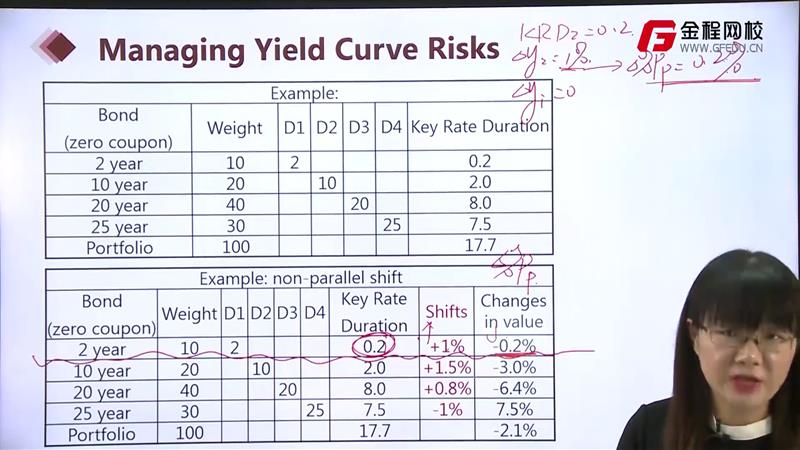 Managing Yield Curve Risks
KRD₂=0.2
Δy₂=1%
%Δp=0.2%
Δyᵢ=0
金程网校
WWW.GFEDU.CN
Example:
Bond (zero coupon) Weight D1 D2 D3 D4 Key Rate Duration
2 year 10 2 0.2
10 year 20 10 2.0
20 year 40 20 8.0
25 year 30 25 7.5
Portfolio 100 17.7
Example: non-parallel shift
Bond (zero coupon) Weight D1 D2 D3 D4 Key Rate Duration Shifts Changes in value
2 year 10 2 0.2 +1% -0.2%
10 year 20 10 2.0 +1.5% -3.0%
20 year 40 20 8.0 +0.8% -6.4%
25 year 30 25 7.5 -1% 7.5%
Portfolio 100 17.7 -2.1%